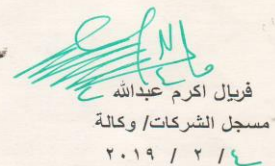 فريال اكرم عبدالله
مسجل الشركات/ وكالة
٤ / ٢ / ٢٠١٩